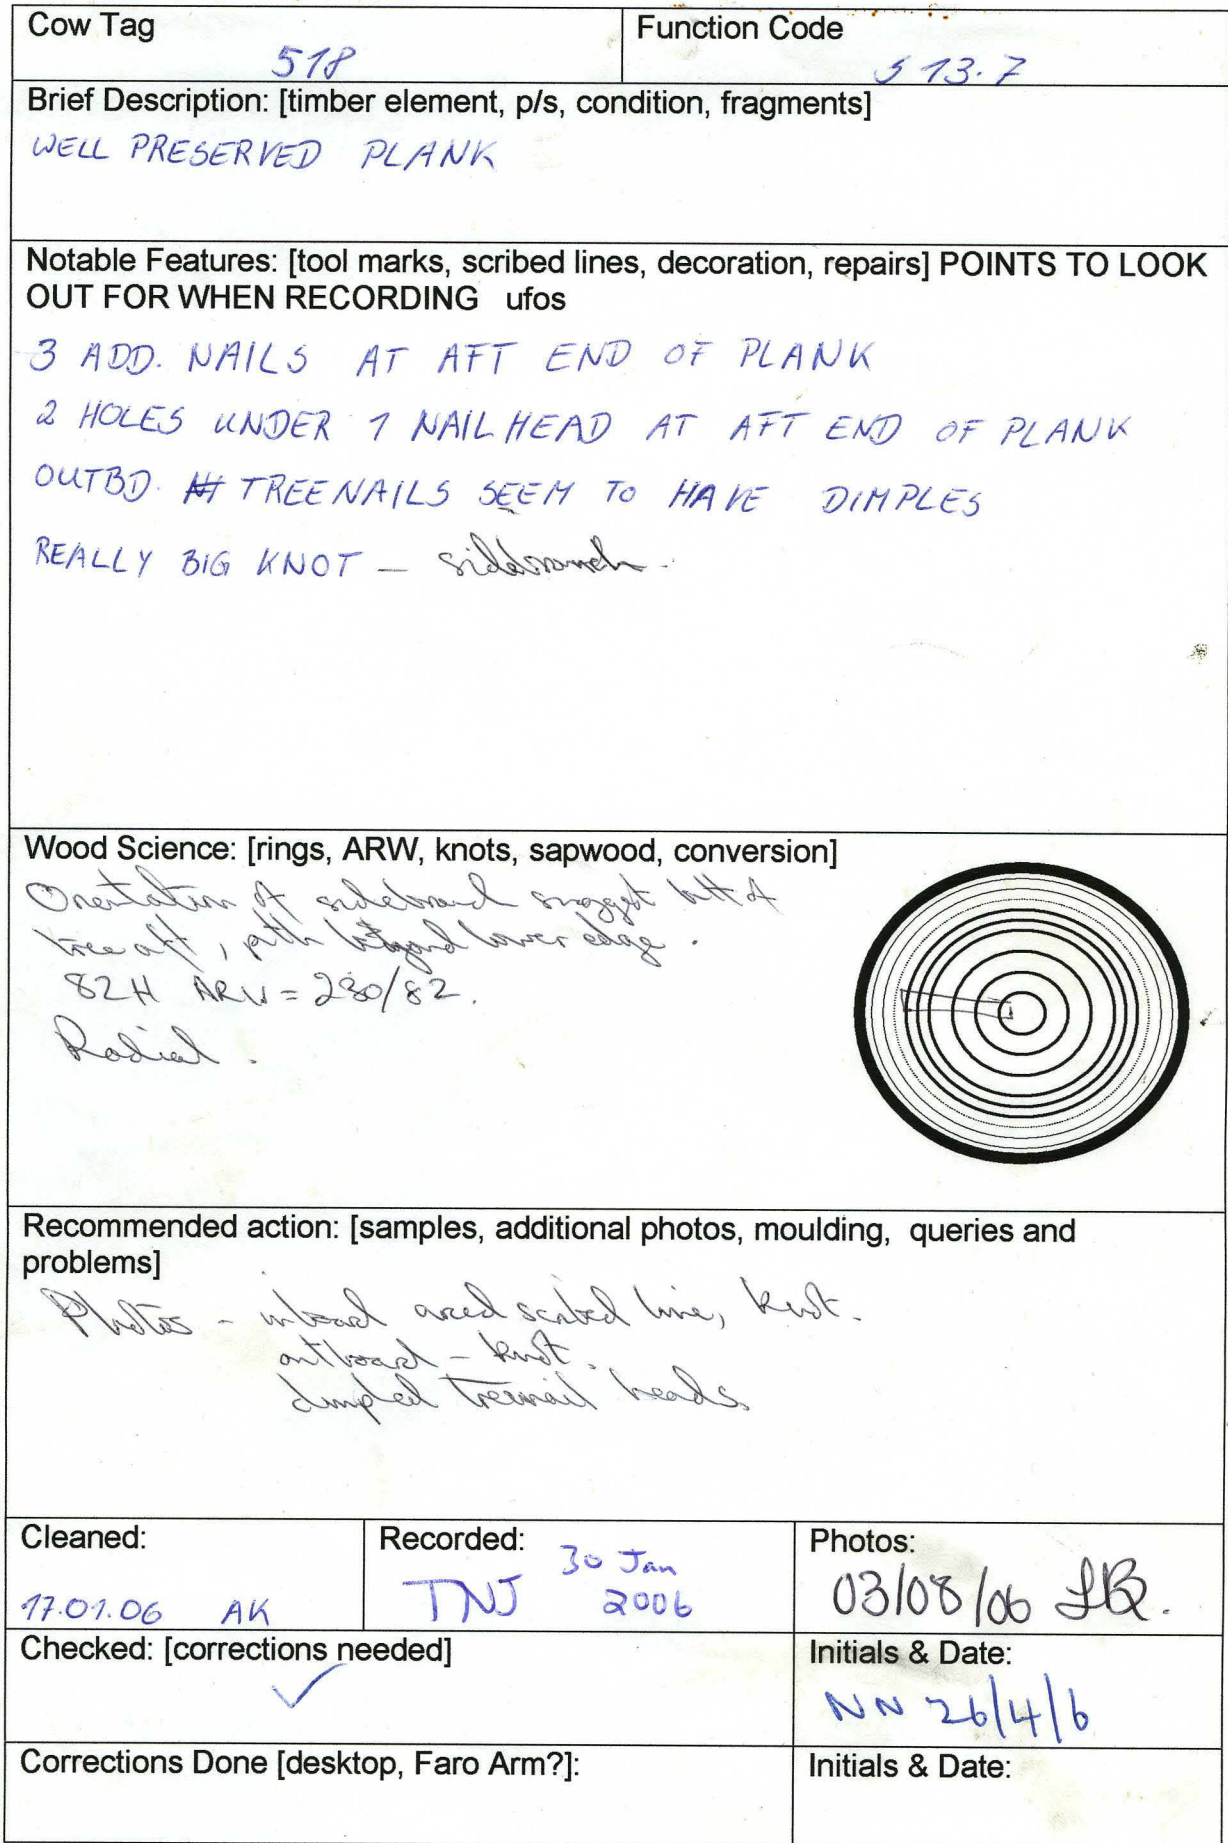 Cow Tag
518
Function Code
S 13.7
Brief Description: [timber element, p/s, condition, fragments]
WELL PRESERVED PLANK
Notable Features: [tool marks, scribed lines, decoration, repairs] POINTS TO LOOK
OUT FOR WHEN RECORDING ufos
3 ADD. NAILS AT AFT END OF PLANK
2 HOLES UNDER 1 NAILHEAD AT AFT END OF PLANK
OUTBD. TREENAILS SEEM TO HAVE DIMPLES
REALLY BIG KNOT – sidebranch.
Wood Science: [rings, ARW, knots, sapwood, conversion]
Orientation of sidebranch suggest butt of
tree aft, pith beyond lower edge.
82H ARW = 230/82.
Radial.
Recommended action: [samples, additional photos, moulding, queries and
problems]
Photos – inboard scribed line, knot.
outboard – knot.
dimpled treenail heads
Cleaned:
17.01.06 AK
Recorded:
30 Jan
TNJ 2006
Photos:
03/08/06
Checked: [corrections needed]
✓
Initials & Date:
NN 26/4/6
Corrections Done [desktop, Faro Arm?]:
Initials & Date: